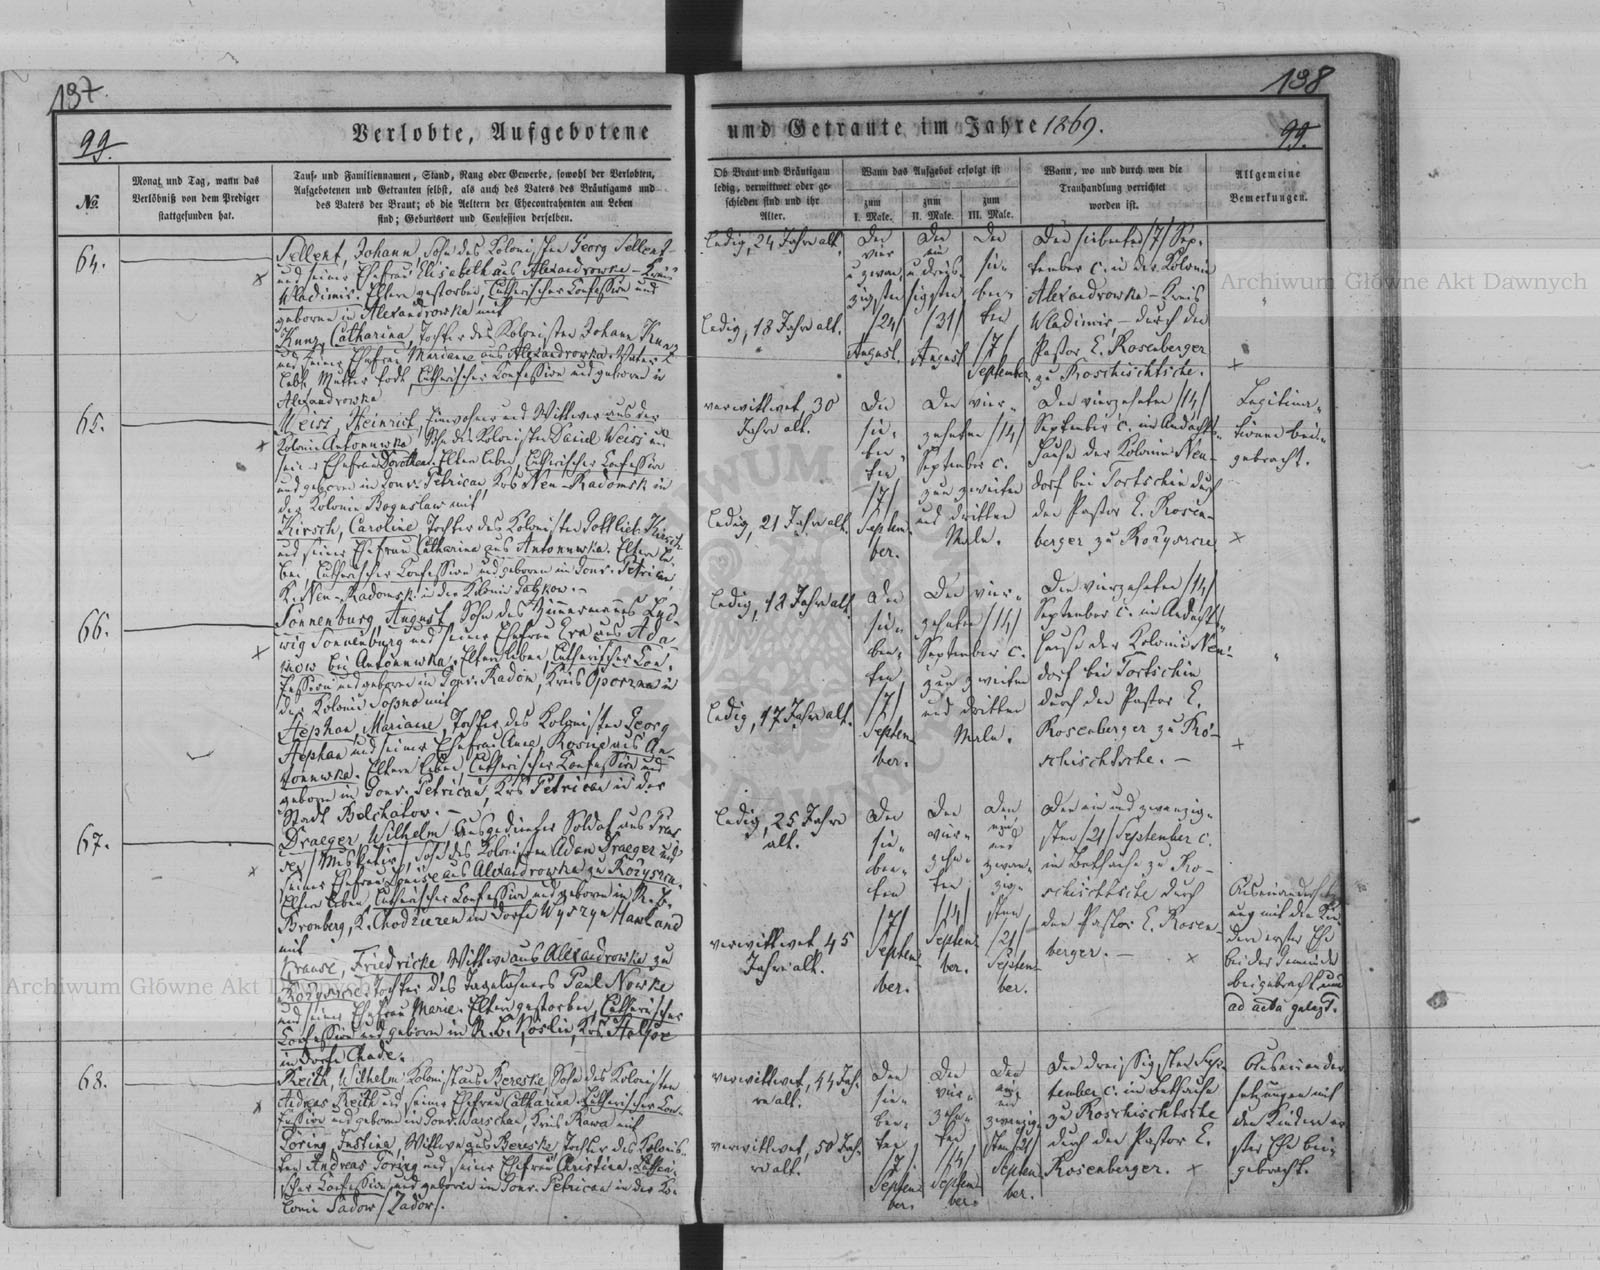 197.
198
99.
Verlobte, Aufgebotene
und Getraute im Jahre 1869.
99.
No.
Monat und Tag, wann das
Verlöbniß von dem Prediger
stattgefunden hat.
Tauf- und Familiennamen, Stand, Rang oder Gewerbe, sowohl der Verlobten,
Aufgebotenen und Getrauten selbst, als auch des Vaters des Bräutigams und
des Vaters der Braut; ob die Aeltern der Ehecontrahenten am Leben
sind; Geburtsort und Confession derselben.
Ob Braut und Bräutigam
ledig, verwittwet oder ge-
schieden sind und ihr
Alter.
Wann das Aufgebot erfolgt ist
zum
I. Male.
zum
II. Male.
zum
III. Male.
Wann, wo und durch wen die
Trauhandlung verrichtet
worden ist.
Allgemeine
Bemerkungen.
64.
Sellent, Johann, Sohn des Kolonisten Georg Sellent
und seiner Ehefrau Elisabeth aus Alexandrowka - Kreis
Wladimir. Eltern gestorben, Lutherischer Confession und
geboren in Alexandrowka mit
Kunz, Catharina, Tochter des Kolonisten Johann Kunz
und seiner Ehefrau Mariane aus Alexandrowka. Vater
lebt, Mutter todt, Lutherischer Confession und geboren in
Alexandrowka
ledig, 24 Jahre alt.
ledig, 18 Jahre alt.
Den
vier
u. zwan-
zigsten
/24/
August.
Den
ein
u. dreis-
sigsten
/31/
August
Den
sie-
ben-
ten
/7/
September
Den siebenten /7/ Sep-
tember c. in der Kolonie
Alexandrowka - Kreis
Wladimir, - durch den
Pastor E. Rosenberger
zu Roschischtsche.
"
65.
Weiss, Heinrich, Einwohner und Wittwer aus der
Kolonie Antonuwka, Sohn des Kolonisten Daniel Weiss und
seiner Ehefrau Dorothea. Eltern leben, Lutherischer Confession
und geboren in Gouv. Petrican, Krs Neu-Radomsk in
der Kolonie Boguslaw mit
Hirsch, Caroline, Tochter des Kolonisten Gottlieb Hirsch
und seiner Ehefrau Catharina aus Antonuwka. Eltern le-
ben, Lutherischer Confession und geboren in Gouv. Petrican,
K. Neu-Radomsk in der Kolonie
verwittwet, 30
Jahre alt.
ledig, 21 Jahre alt.
Den
sie-
ben-
ten
/7/
Septem-
ber.
Den vier-
zehnten /14/
September c.
zum zweiten
und dritten
Male.
Den vierzehnten /14/
September c. im Andachts-
hause der Kolonie Neu-
dorf bei Tortschin durch
den Pastor E. Rosen-
berger zu Rozyszcze
Legitima-
tionen bei-
gebracht.
66.
Sonnenburg, August, Sohn des Zimmermannes Lud-
wig Sonnenburg und seiner Ehefrau Eva aus Ada-
mow bei Antonuwka. Eltern leben, Lutherischer Con-
fession und geboren in Gouv. Radom, Kreis Opoczna in
der Kolonie Sopno mit
Hephan, Mariane, Tochter des Kolonisten Georg
Hephan und seiner Ehefrau Anne, Rosine aus An-
tonuwka. Eltern leben, Lutherischer Confession und
geboren in Gouv. Petrican, Krs Petrican in der
Stadt Belchatow. -
ledig, 18 Jahre alt.
ledig, 17 Jahre alt.
Den
sie-
ben-
ten
/7/
Septem-
ber.
Den vier-
zehnten /14/
September c.
zum zweiten
und dritten
Male.
Den vierzehnten /14/
September c. im Andachts-
hause der Kolonie Neu-
dorf bei Tortschin
durch den Pastor E.
Rosenberger zu Ro-
schischtsche. -
"
67.
Draeger, Wilhelm ausgedienter Soldat aus
/Musketier/, Sohn des Kolonisten Adam Draeger und
seiner Ehefrau Louise aus Alexandrowka zu Rozyszcze.
Eltern leben, Lutherischer Confession und geboren in R. B.
Bromberg, K. Chodziezen in Dorfe Wyszyn Hauland
mit
Krause, Friedricke Wittwe aus Alexandrowka zu
Rozyszcze, Tochter des Tagelöhners Paul Nowke
und seiner Ehefrau Marie. Eltern gestorben, Lutherischer
Confession und geboren in R. B. Koslin, Krs
in Dorfe
ledig, 25 Jahre
alt.
verwittwet, 45
Jahre alt.
Den
sie-
ben-
ten
/7/
Septem-
ber.
Den
vier-
zehn-
ten
/14/
Septem-
ber.
Den
ein
und
zwan-
zig-
sten
/21/
Septem-
ber.
Den ein und zwanzig-
sten /21/ September c.
im Bethause zu Ro-
schischtsche durch
den Pastor E. Rosen-
berger. -
Auseinandersetz-
ung mit den Kin-
dern erster Ehe
bei der Gemeinde
beigebracht und
ad acta gelegt.
68.
Reith, Wilhelm Kolonist aus Bereske, Sohn des Kolonisten
Andreas Reith und seiner Ehefrau Catharina. Lutherischer Con-
fession und geboren in Gouv. Warschau, Kreis Rawa mit
Göring, Justine, Wittwe aus Bereske, Tochter des Kolonis-
ten Andreas Göring und seiner Ehefrau Christine. Luthe-
rischer Confession und geboren in Gouv. Petrican in der Ko-
lonie Sadow /Zador/.
verwittwet, 44 Jah-
re alt.
verwittwet, 50 Jah-
re alt.
Den
sie-
ben-
ten
/7/
Septem-
ber.
Den
vier-
zehn-
ten
/14/
Septem-
ber.
Den
ein
und
zwanzig-
sten /21/
Septem-
ber.
Den dreissigsten Sep-
tember c. im Bethause
zu Roschischtsche
durch den Pastor E.
Rosenberger.
Auseinander-
setzungen mit
den Kindern er-
ster Ehe bei-
gebracht.
Archiwum Główne Akt Dawnych
Archiwum Główne Akt Dawnych